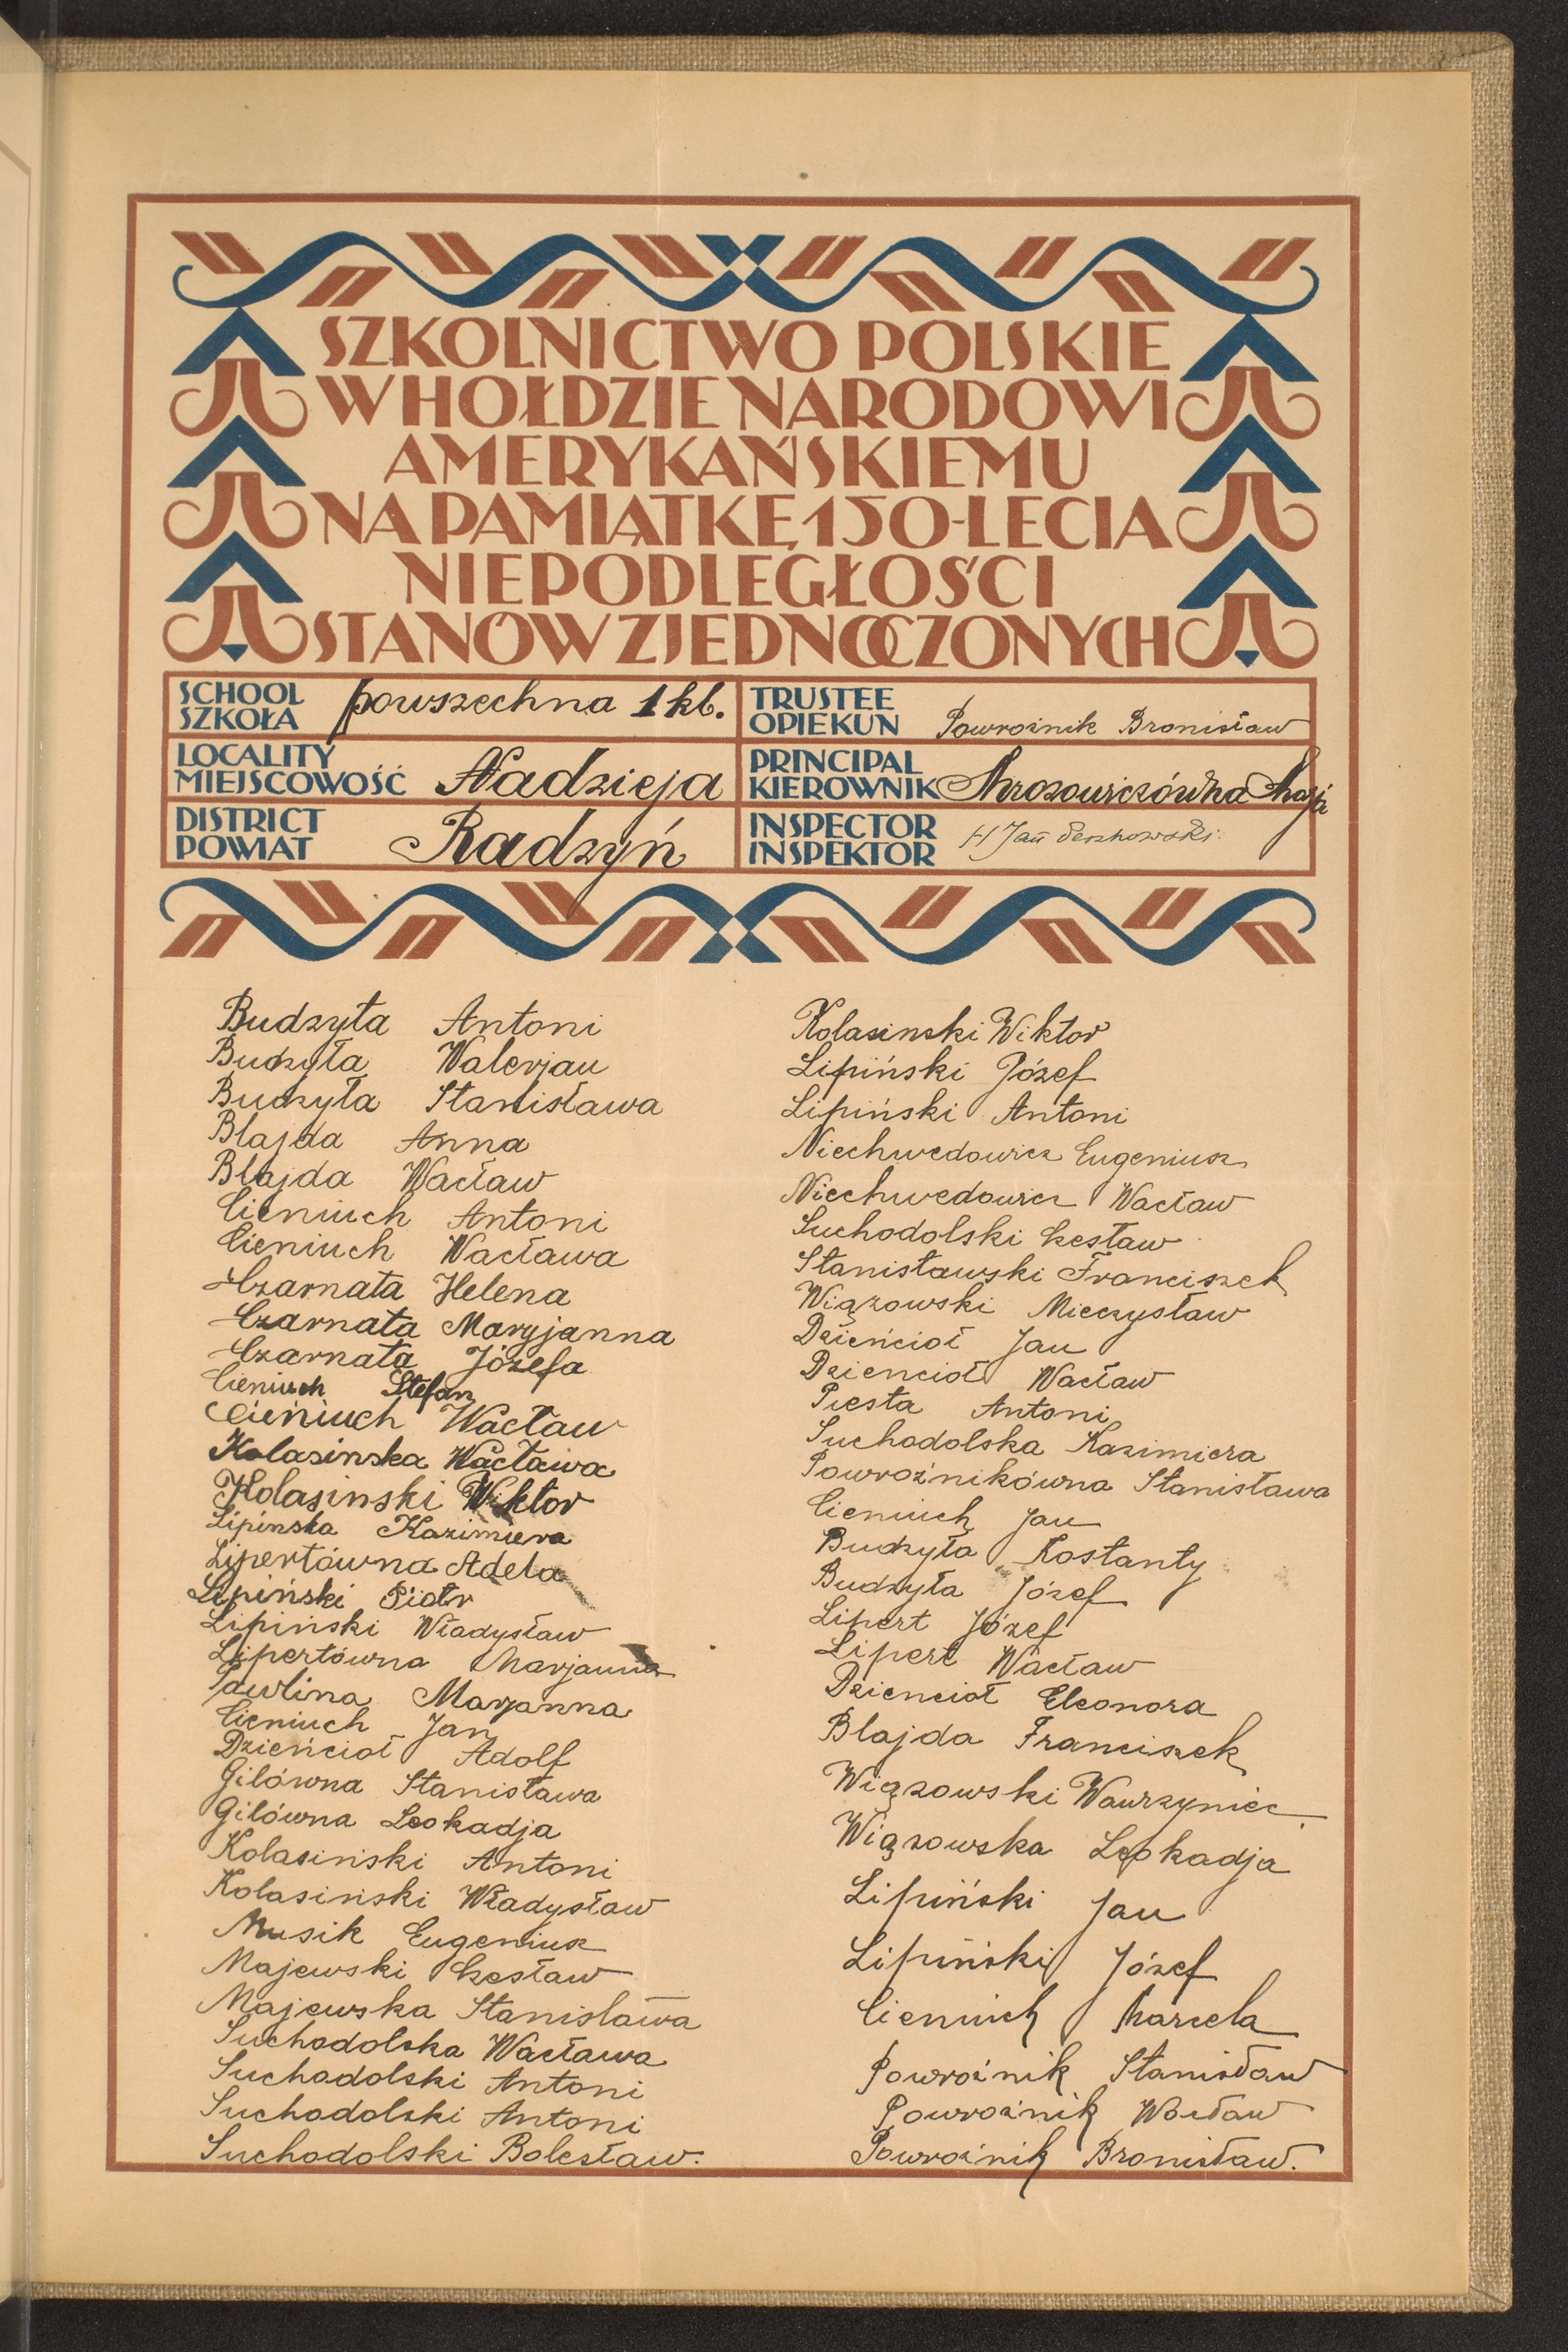 SZKOLNICTWO POLSKIE
W HOŁDZIE NARODOWI
AMERYKAŃSKIEMU
NA PAMIĄTKĘ 150-LECIA
NIEPODLEGŁOŚCI
STANÓW ZJEDNOCZONYCH
SCHOOL
SZKOŁA
powszechna 1 kl.
TRUSTEE
OPIEKUN
Powroźnik Bronisław
LOCALITY
MIEJSCOWOŚĆ
Nadzieja
PRINCIPAL
KIEROWNIK
Mrozowiczówna
DISTRICT
POWIAT
Radzyń
INSPECTOR
INSPEKTOR
Jan
Budzyła Antoni
Budzyła Walerjan
Budzyła Stanisława
Blajda Anna
Blajda Wacław
Cieniuch Antoni
Cieniuch Wacława
Czarnata Helena
Czarnata Maryjanna
Czarnata Józefa
Cieniuch Stefan
Cieniuch Wacław
Kolasinska Wacława
Kolasinski Wiktor
Lipinska Kazimiera
Lipertówna Adela
Lipiński Piotr
Lipiński Władysław
Lipertówna Marjanna
Pawlina Marjanna
Cieniuch Jan
Dzieńcioł Adolf
Gilówna Stanisława
Gilówna Leokadja
Kolasiński Antoni
Kolasiński Władysław
Musik Eugeniusz
Majewski Czesław
Majewska Stanisława
Suchodolska Wacława
Suchodolski Antoni
Suchodolski Antoni
Suchodolski Bolesław.
Kolasinski Wiktor
Lipiński Józef
Lipiński Antoni
Niechwedowicz Eugeniusz
Niechwedowicz Wacław
Suchodolski Czesław
Stanisławski Franciszek
Wiązowski Mieczysław
Dzieńcioł Jan
Dziencioł Wacław
Piesta Antoni
Suchodolska Kazimiera
Powroźnikówna Stanisława
Cieniuch Jan
Budzyła Kostanty
Budzyła Józef
Lipert Józef
Lipert Wacław
Dziencioł Eleonora
Blajda Franciszek
Wiązowski Wawrzyniec
Wiązowska Leokadja
Lipiński Jan
Lipiński Józef
Cieniuch Marcela
Powroźnik Stanisław
Powroźnik Wacław
Powroźnik Bronisław.